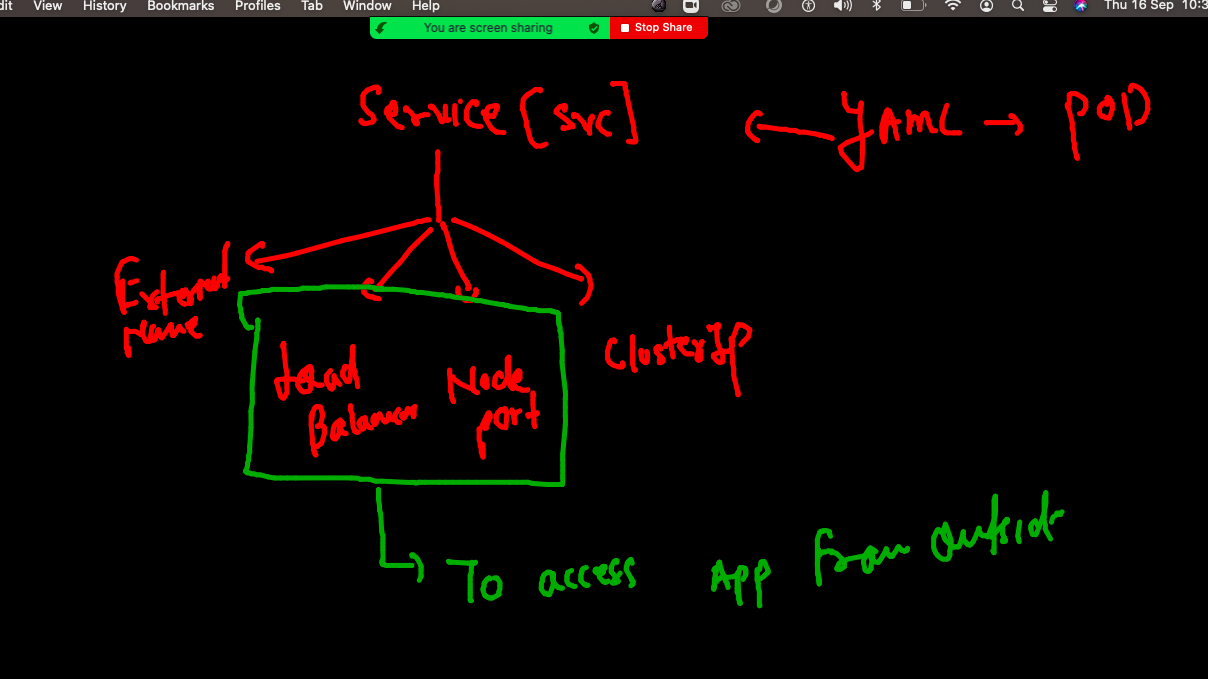 dit View History Bookmarks Profiles Tab Window Help Thu 16 Sep 10:3
You are screen sharing Stop Share
Service [svc] YAML POD
External
name
Load
Balancer
Node
port
ClusterIP
To access App from outside